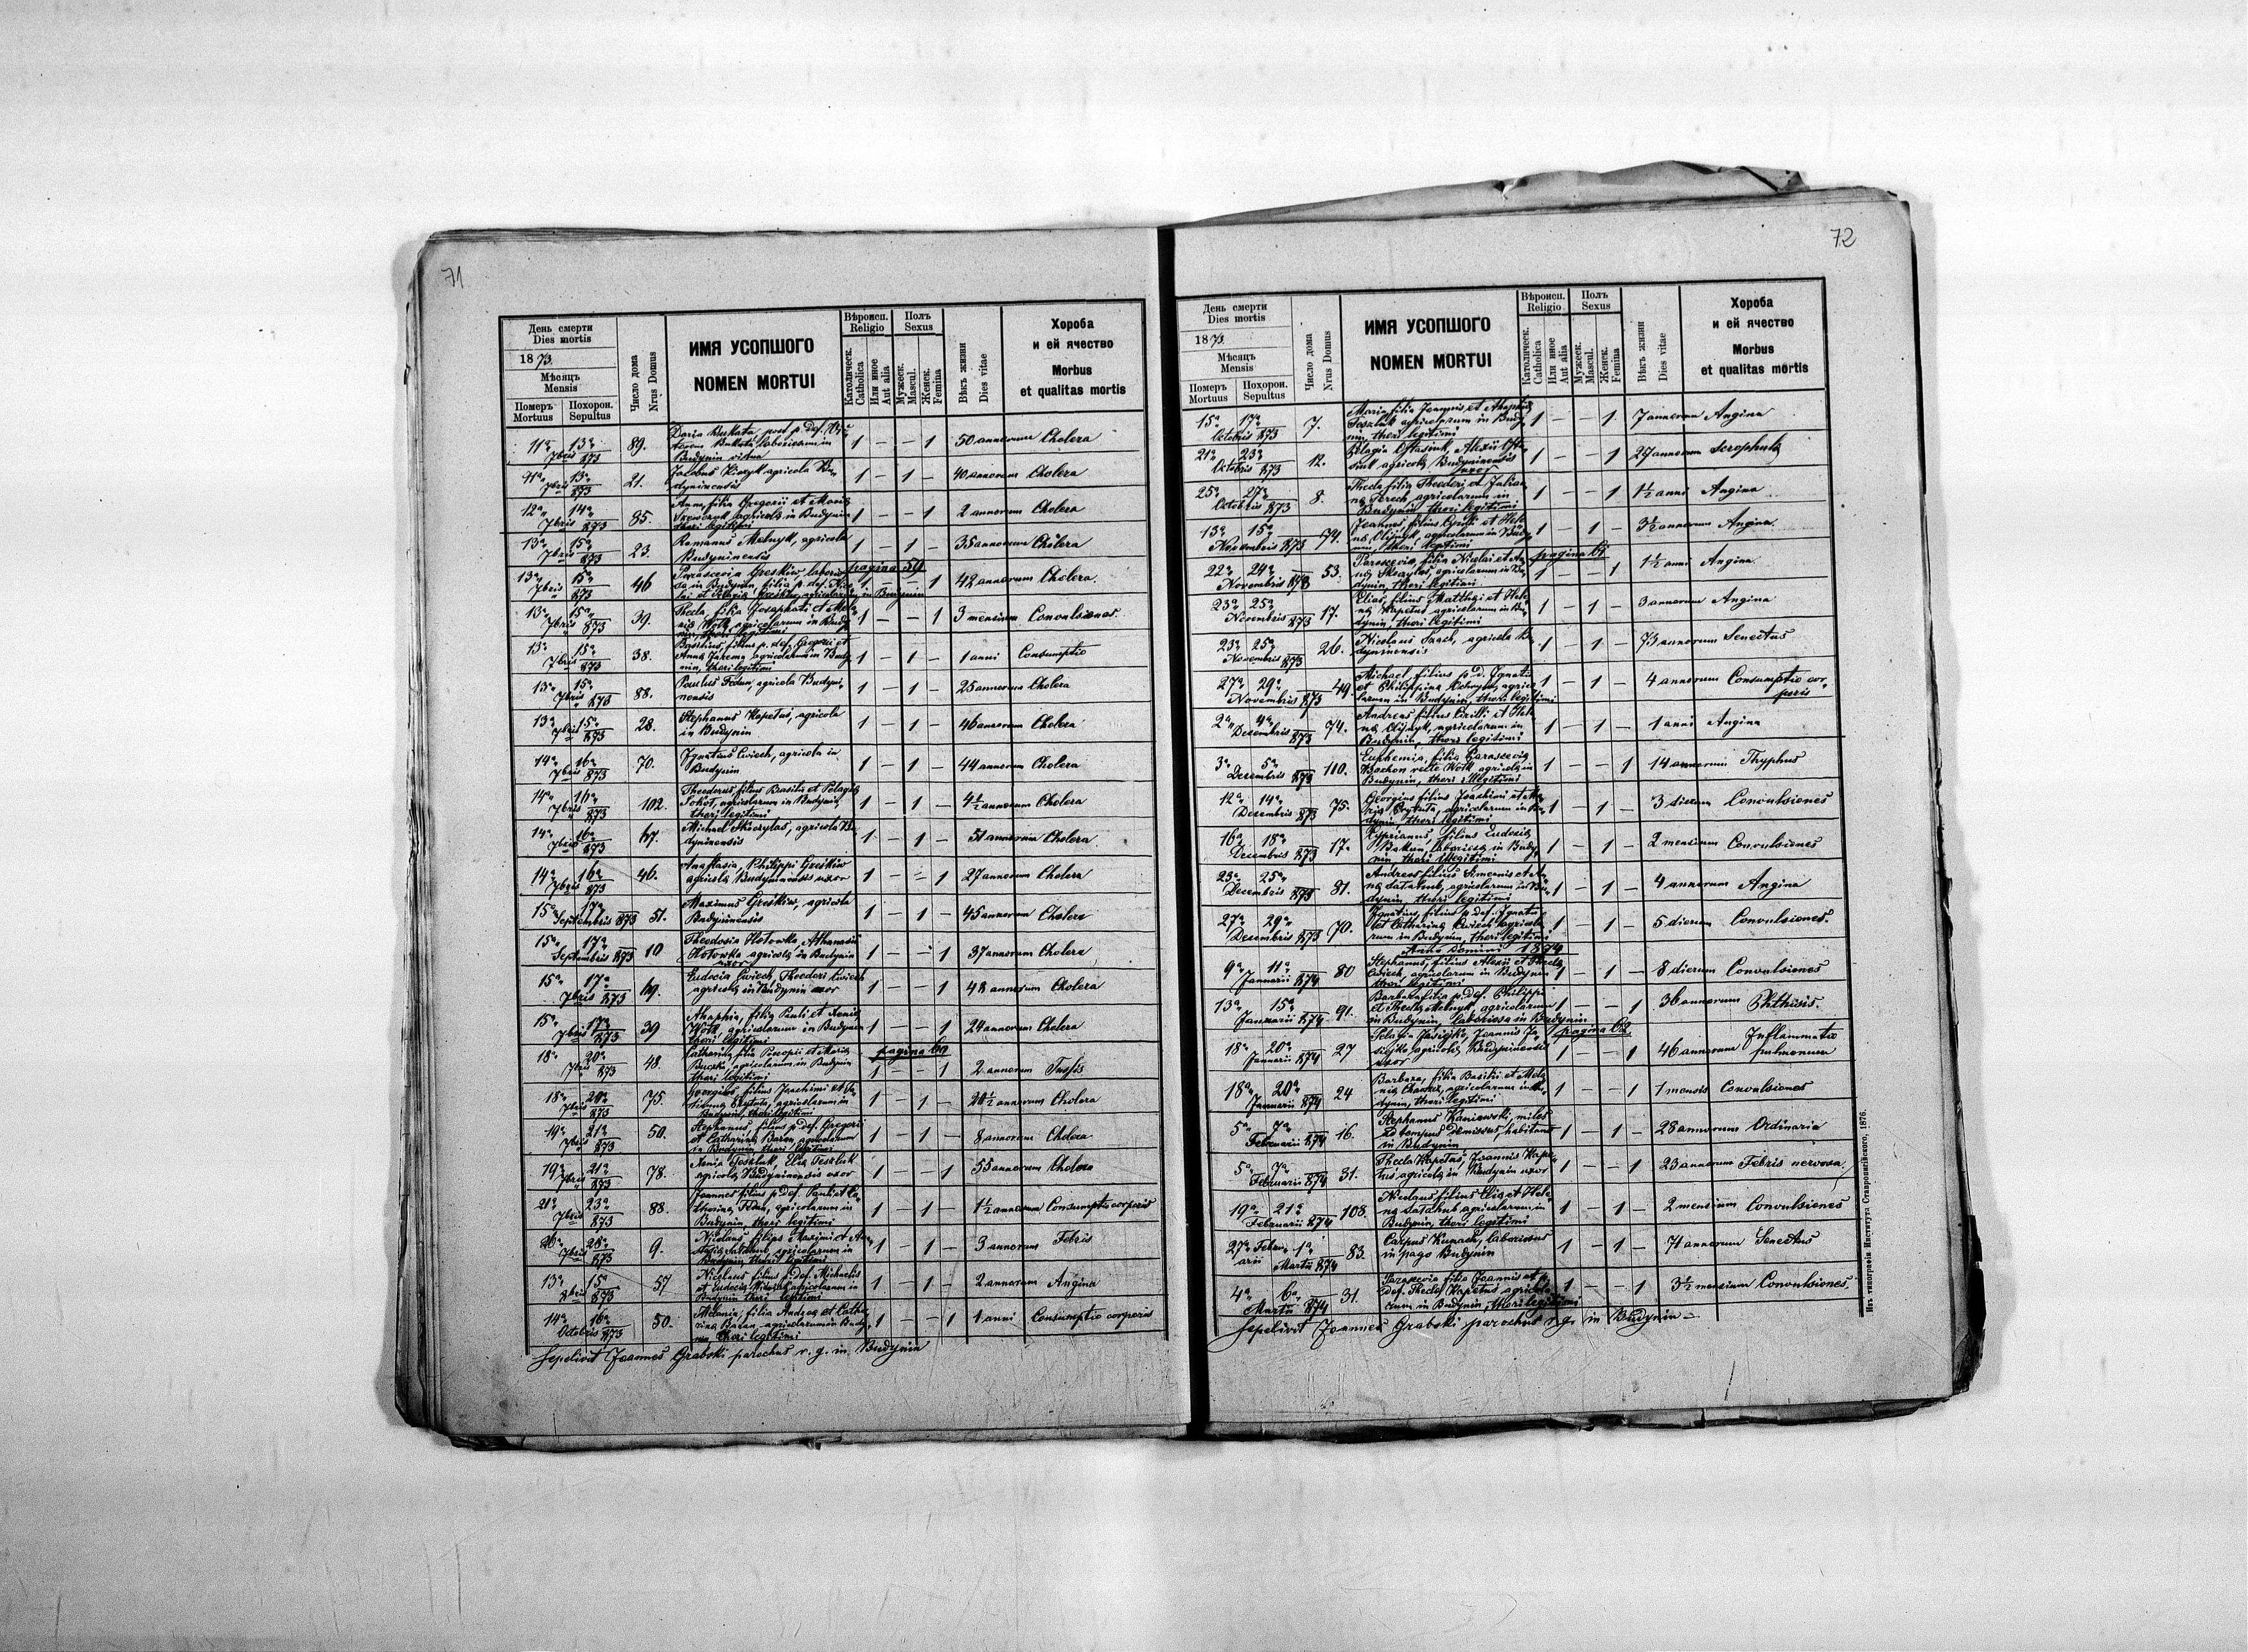 71
День смерти
Dies mortis
1873
Мѣсяцъ
Mensis
Померъ
Mortuus
Похорон.
Sepultus
Число дома
Nrus Domus
ИМЯ УСОПШОГО
NOMEN MORTUI
Вѣроисп.
Religio
Католическ.
Catholica
Или иное
Aut alia
Полъ
Sexus
Мужеск.
Mascul.
Женск.
Femina
Вѣкъ жизни
Dies vitae
Хороба
и ей ячество
Morbus
et qualitas mortis
11a 13a 7bris 873 89. Daria Bukata post p. def.
Bukata laboriosam in
Budynin vidua 1 – – 1 50 annorum Cholera
11a 13a 7bris 873 21. Jacobus agricola Bu-
dyninensis 1 – 1 – 40 annorum Cholera
12a 14a 7bris 873 85. Anna filia Gregorii et Maria
Szewczuk agricola in Budynin
thori legitimi 1 – – 1 2 annorum Cholera
13a 15a 7bris 873 23. Romanus Melnyk, agricola
Budyninensis 1 – 1 – 35 annorum Cholera
pagina 59
13a 15a 7bris 873 46 Parascevia Greskiw, laborio-
sa in Budynin filia p. def. Nico-
lai et Pelagia Greskiw, agricolarum in Budynin 1 – – 1 42 annorum Cholera.
13a 15a 7bris 873 39. Thecla filia Josaphati et Mela-
nia Wolk agricolarum in Budy-
nin, thori legitimi 1 – – 1 3 mensium Convulsiones
13a 15a 7bris 873 38. Basilius, filius p. def. Gregorii et
Anna Jarema agricolarum in Budy-
nin, thori legitimi 1 – 1 – 1 anni Consumptio
13a 15a 7bris 873 88. Paulus Fedun, agricola Budyni-
nensis 1 – 1 – 25 annorum Cholera
13a 15a 7bris 873 28. Stephanus Kapetus, agricola
in Budynin 1 – 1 – 46 annorum Cholera
14a 16a 7bris 873 70. Ignatius Cwiech, agricola in
Budynin 1 – 1 – 44 annorum Cholera
14a 16a 7bris 873 102. Theodorus, filius Basilii et Pelagia
Sokot, agricolarum in Budynin,
thori legitimi 1 – 1 – 4½ annorum Cholera
14a 16a 7bris 873 67. Michael Skocrylas, agricola Bu-
dyninensis 1 – 1 – 51 annorum Cholera
14a 16a 7bris 873 46. Anastasia, Philippi Greskiw
agricola Budyninensis uxor 1 – – 1 27 annorum Cholera
15a 17a Septembris 873 51. Maximus Greskiw, agricola
Budyninensis 1 – 1 – 45 annorum Cholera
15a 17a Septembris 873 10 Theodosia Hotowka, Athanasii
Hotowka agricola in Budynin
uxor 1 – – 1 37 annorum Cholera
15a 17a 7bris 873 69. Eudocia Cwiech, Theodori Cwiech
agricola in Budynin uxor 1 – – 1 48 annorum Cholera
15a 17a 7bris 873 39 Ahaphia, filia Pauli et Xenia
Wolk, agricolarum in Budynin
thori legitimi 1 – – 1 24 annorum Cholera
pagina 60
18a 20a 7bris 873 48. Catharina filia Procopii et Maria
Buczko, agricolarum in Budynin
thori legitimi 1 – – 1 2 annorum Tussis
18a 20a 7bris 873 75. Georgius, filius Joachimi et
agricolarum in
Budynin, thori legitimi 1 – 1 – 20½ annorum Cholera
19a 21a 7bris 873 50. Stephanus, filius p. def. Gregorii
et Catharina Baran agricolarum
in Budynin thori legitimi 1 – 1 – 8 annorum Cholera
19a 21a 7bris 873 78. Xenia Teszluk, Elia Teszluk
agricola Budyninensis uxor 1 – – 1 55 annorum Cholera
21a 23a 7bris 873 88. Joannes filius p. def. Pauli et Ca-
tharina Fedun, agricolarum in
Budynin, thori legitimi 1 – 1 – 1½ annorum Consumptio corporis
26a 28a 7bris 873 9. Nicolaus, filius Maximi et Ana-
stasia Satahub, agricolarum in
Budynin thori legitimi 1 – 1 – 3 annorum Febris
13a 15a 8bris 873 57 Nicolaus filius p. def. Michaelis
et Eudocia agricolarum in
Budynin thori legitimi 1 – 1 – 2 annorum Angina
14a 16a Octobris 873 50. Melania, filia Andrea et Catha-
rina Baran, agricolarum in Budy-
nin thori legitimi 1 – – 1 1 anni Consumptio corporis
Sepelivit Joannes Grabski parochus r. g. in Budynin
72
День смерти
Dies mortis
1873
Мѣсяцъ
Mensis
Померъ
Mortuus
Похорон.
Sepultus
Число дома
Nrus Domus
ИМЯ УСОПШОГО
NOMEN MORTUI
Вѣроисп.
Religio
Католическ.
Catholica
Или иное
Aut alia
Полъ
Sexus
Мужеск.
Mascul.
Женск.
Femina
Вѣкъ жизни
Dies vitae
Хороба
и ей ячество
Morbus
et qualitas mortis
15a 17a Octobris 873 7. Maria filia Joannis et Ahaphia
Teszluk agricolarum in Budy-
nin, thori legitimi 1 – – 1 7 annorum Angina
21a 23a Octobris 873 12. Pelagia Ostasiuk, Alexii Osta-
siuk agricola Budyninensis
uxor 1 – – 1 27 annorum Scrophula
25a 27a Octobris 873 8. Thecla filia Theodori et Julian-
na Terech agricolarum in
Budynin thori legitimi 1 – – 1 1½ anni Angina
13a 15a Novembris 873 74. Joannes filius Cyrilli et Hele-
na Olijnyk, agricolarum in Budy-
nin, thori legitimi 1 – 1 – 3½ annorum Angina.
pagina 61
22a 24a Novembris 873 53. Parascevia, filia Nicolai et An-
na Skocrylas, agricolarum in Bu-
dynin, thori legitimi 1 – – 1 1½ anni Angina.
23a 25a Novembris 873 17. Elias, filius Matthai et Hele-
na Kapetus agricolarum in Bu-
dynin, thori legitimi 1 – 1 – 3 annorum Angina
23a 25a Novembris 873 26. Nicolaus Saach, agricola Bu-
dyninensis 1 – 1 – 73 annorum Senectus
27a 29a Novembris 873 49. Michael, filius p. d. Ignatii
et Philippina agrico-
larum in Budynin, thori legitimi 1 – 1 – 4 annorum Consumptio cor-
poris
2a 4a Decembris 873 74. Andreas filius Cirilli et Hele-
na Olijnyk, agricolarum in
Budynin, thori legitimi 1 – 1 – 1 anni Angina
3a 5a Decembris 873 110. Euphemia, filia Parascevia
Bachon recte Wolk agricola in
Budynin, thori illegitimi 1 – – 1 14 annorum Thyphus
12a 14a Decembris 873 75. Georgius filius Joachimi et Ma-
ria agricolarum in Bu-
dynin, thori legitimi 1 – 1 – 3 dierum Convulsiones
16a 18a Decembris 873 17. Cyprianus, filius Eudoxia
Bakun, laboriosa in Budy-
nin thori illegitimi 1 – 1 – 2 mensium Convulsiones
23a 25a Decembris 873 81. Andreas filius Simeonis et An-
na Satahub, agricolarum in Bu-
dynin, thori legitimi 1 – 1 – 4 annorum Angina
27a 29a Decembris 873 70. Ignatius, filius p. def. Ignatii
et Catharina Cwiech agricola-
rum in Budynin, thori legitimi 1 – 1 – 5 dierum Convulsiones.
Anno Domini 1874
9a 11a Januarii 874 80 Stephanus, filius Alexii et Thecla
Cwiech, agricolarum in Budynin
thori legitimi 1 – 1 – 8 dierum Convulsiones
13a 15a Januarii 874 91. Barbara filia p. def. Philippi
et Thecla Melnyk, agricolarum
in Budynin, laboriosa in Budynin 1 – – 1 36 annorum Phthisis.
pagina 62
18a 20a Januarii 874 27 Pelagia Jasiejko, Joannis Ja-
siejko agricola Budyninensis
uxor 1 – – 1 46 annorum Inflammatio
pulmonum
18a 20a Januarii 874 24 Barbara, filia Basilii et Mela-
nia agricolarum in Bu-
dynin, thori legitimi 1 – – 1 1 mensis Convulsiones
5a 7a Februarii 874 16. Stephanus Kaniowski, miles
ad tempus dimissus, habitans
in Budynin 1 – 1 – 28 annorum Ordinaria
5a 7a Februarii 874 31. Thecla Kapetus, Joannis Kape-
tus agricola in Budynin uxor 1 – – 1 23 annorum Febris nervosa
19a 21a Februarii 874 108. Nicolaus filius Elia et Hele-
na Satahub agricolarum in
Budynin, thori legitimi 1 – 1 – 2 mensium Convulsiones
27a Febru-
arii 1a Martii 874 83. Carpus Kunach, laboriosus
in pago Budynin 1 – 1 – 71 annorum Senectus
4a 6a Martii 874 31. Parascevia filia Joannis et p.
def. Thecla Kapetus agricola-
rum in Budynin, thori legitimi 1 – – 1 3½ mensium Convulsiones.
Sepelivit Joannes Grabski parochus r. g. in Budynin
Изъ типографіи Института Ставропигійского, 1876.